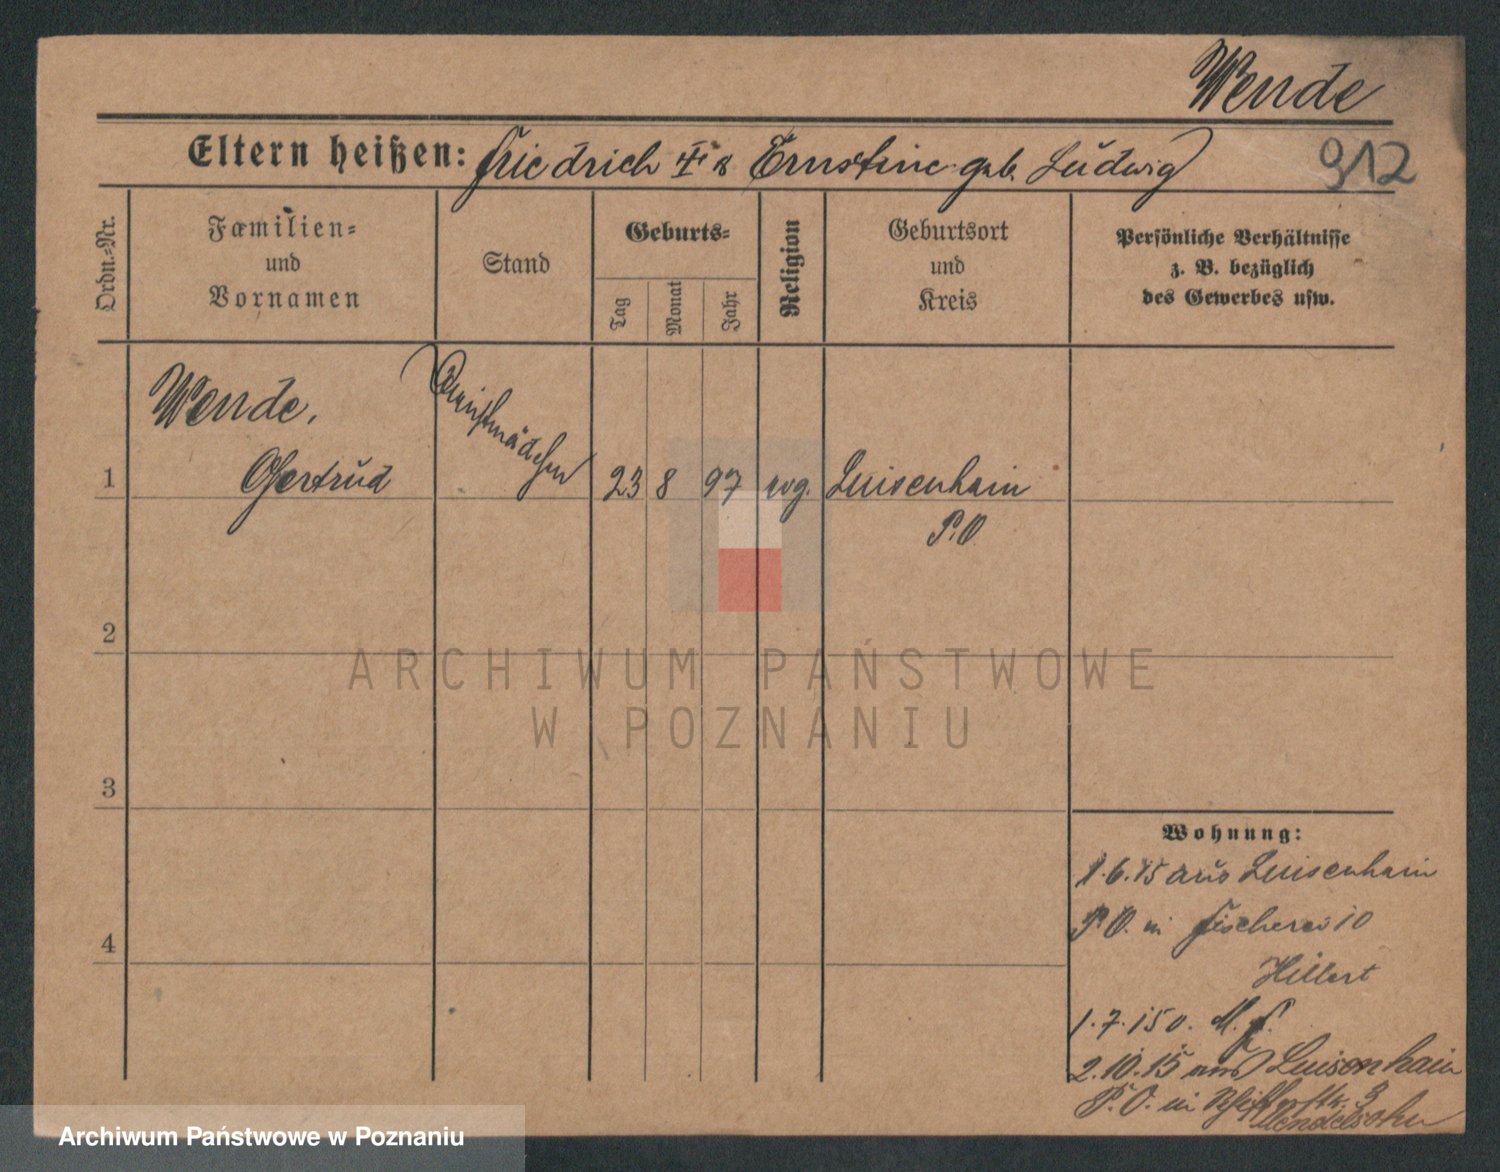 Wende
Eltern heißen: Friedrich u Ernstine geb. Ludwig
912
Ordn.-Nr.
Familien-
und
Vornamen
Stand
Geburts-
Tag
Monat
Jahr
Religion
Geburtsort
und
Kreis
Persönliche Verhältnisse
z. B. bezüglich
des Gewerbes usw.
Wende,
Dienstmädchen
1 Gertrud 23 8 97 evg. Luisenhain
P. O.
2
ARCHIWUM PAŃSTWOWE
W POZNANIU
3
Wohnung:
1.6.15 aus Luisenhain
P. O. in Fischerei 10
4
Hillert
1.7.15 o. M. f.
2.10.15 aus Luisenhain
P. O. in 3
Mendelsohn
Archiwum Państwowe w Poznaniu